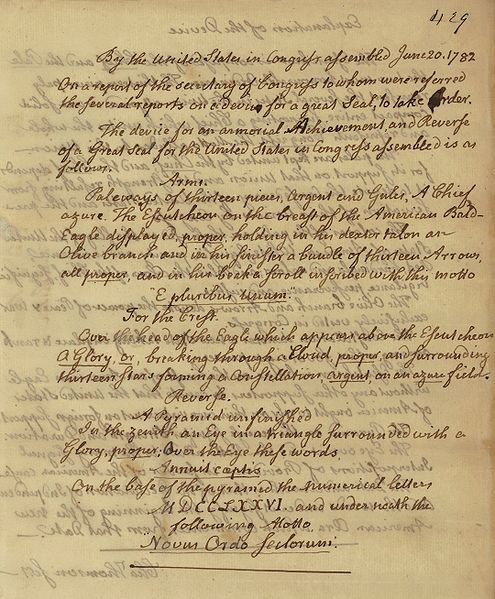 429
By the United States in Congress assembled June 20. 1782
On a report of the secretary of Congress to whom were referred
the several reports on a device for a great Seal, to take Order.
The device for an armorial Atchievement, and Reverse
of a Great Seal for the United States in Congress assembled is as
follows.
Arms.
Paleways of thirteen pieces Argent and Gules, A Chief
azure. The Escutcheon on the breast of the American Bald-
Eagle displayed, proper, holding in his dexter talon an
Olive branch and in his sinister a bundle of thirteen Arrows,
all proper, and in his beak a scroll inscribed with this motto
E pluribus Unum.
For the Crest.
Over the head of the Eagle which appears above the Escutcheon
A Glory, or, breaking through a Cloud, proper, and surrounding
thirteen Stars forming a Constellation, argent, on an azure field.
Reverse.
A Pyramid unfinished
In the zenith an Eye in a triangle surrounded with a
Glory, proper, Over the Eye these words
Annuit cœptis
On the base of the pyramid the numerical letters
MDCCLXXVI. and underneath the
following Motto.
Novus Ordo Seclorum.